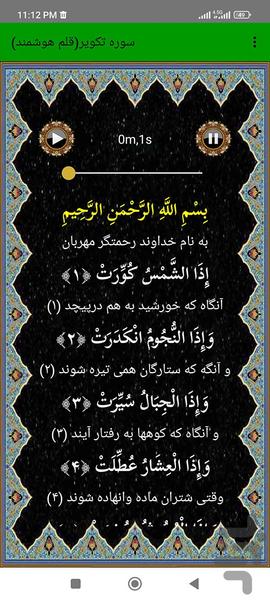 11:12 PM
4.5G
49
سوره تکویر(قلم هوشمند)
0m,1s
بِسْمِ اللَّهِ الرَّحْمَنِ الرَّحِيمِ
به نام خداوند رحمتگر مهربان
إِذَا الشَّمْسُ كُوِّرَتْ ﴿۱﴾
آنگاه که خورشید به هم درپیچد (۱)
وَإِذَا النُّجُومُ انْكَدَرَتْ ﴿۲﴾
و آنگه که ستارگان همی تیره شوند (۲)
وَإِذَا الْجِبَالُ سُيِّرَتْ ﴿۳﴾
و آنگاه که کوهها به رفتار آیند (۳)
وَإِذَا الْعِشَارُ عُطِّلَتْ ﴿۴﴾
وقتی شتران ماده وانهاده شوند (۴)